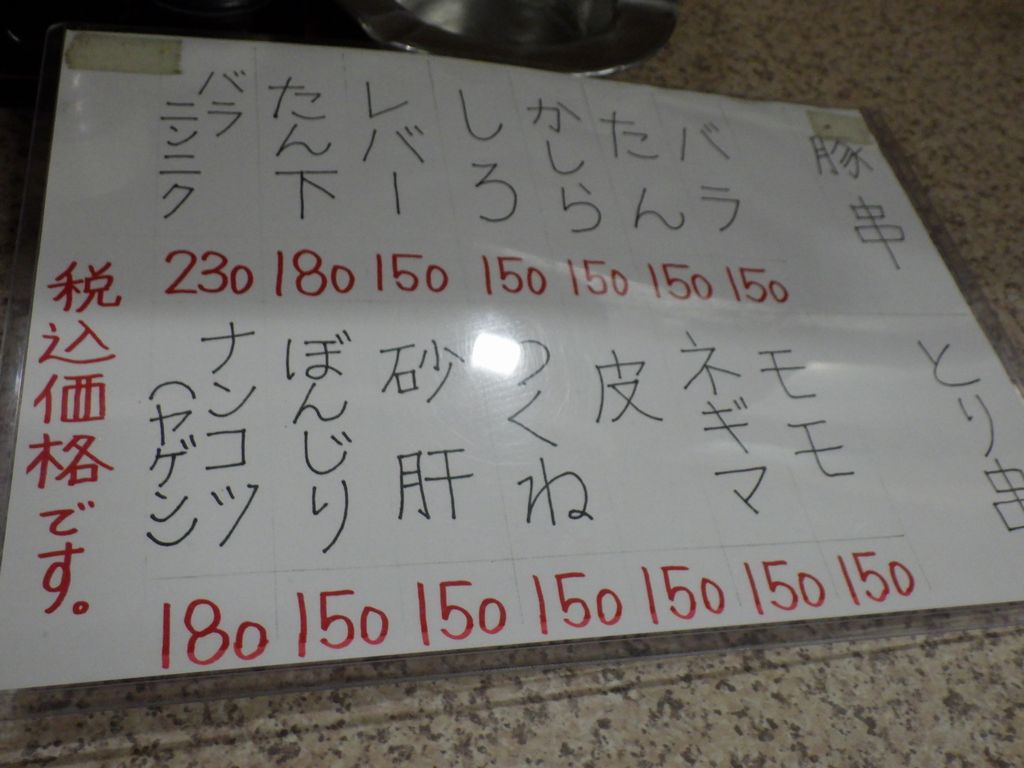 豚串
バラ 150
たん 150
かしら 150
しろ 150
レバー 150
たん下 180
バラニンニク 230
とり串
モモ 150
ネギマ 150
皮 150
つくね 150
砂肝 150
ぼんじり 150
ナンコツ(ヤゲン) 180
税込価格です。